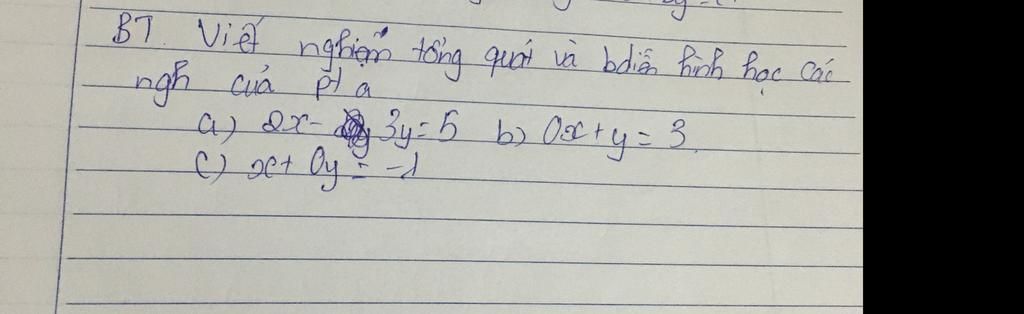 BT. Viết nghiệm tổng quát và bdiễn hình học các
ngh của pt a
a) 2x- 3y=5 b) 0x+y=3.
c) x+ 0y = -1